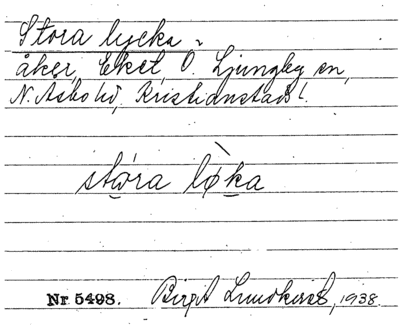 Stora lycka.
åker, Eket, Ö. Ljungby sn,
N. Åsbo hd, Kristianstads l.
stώ̱ra lø̱̀ka
Nr 5498. Birgit Lundkvist, 1938.